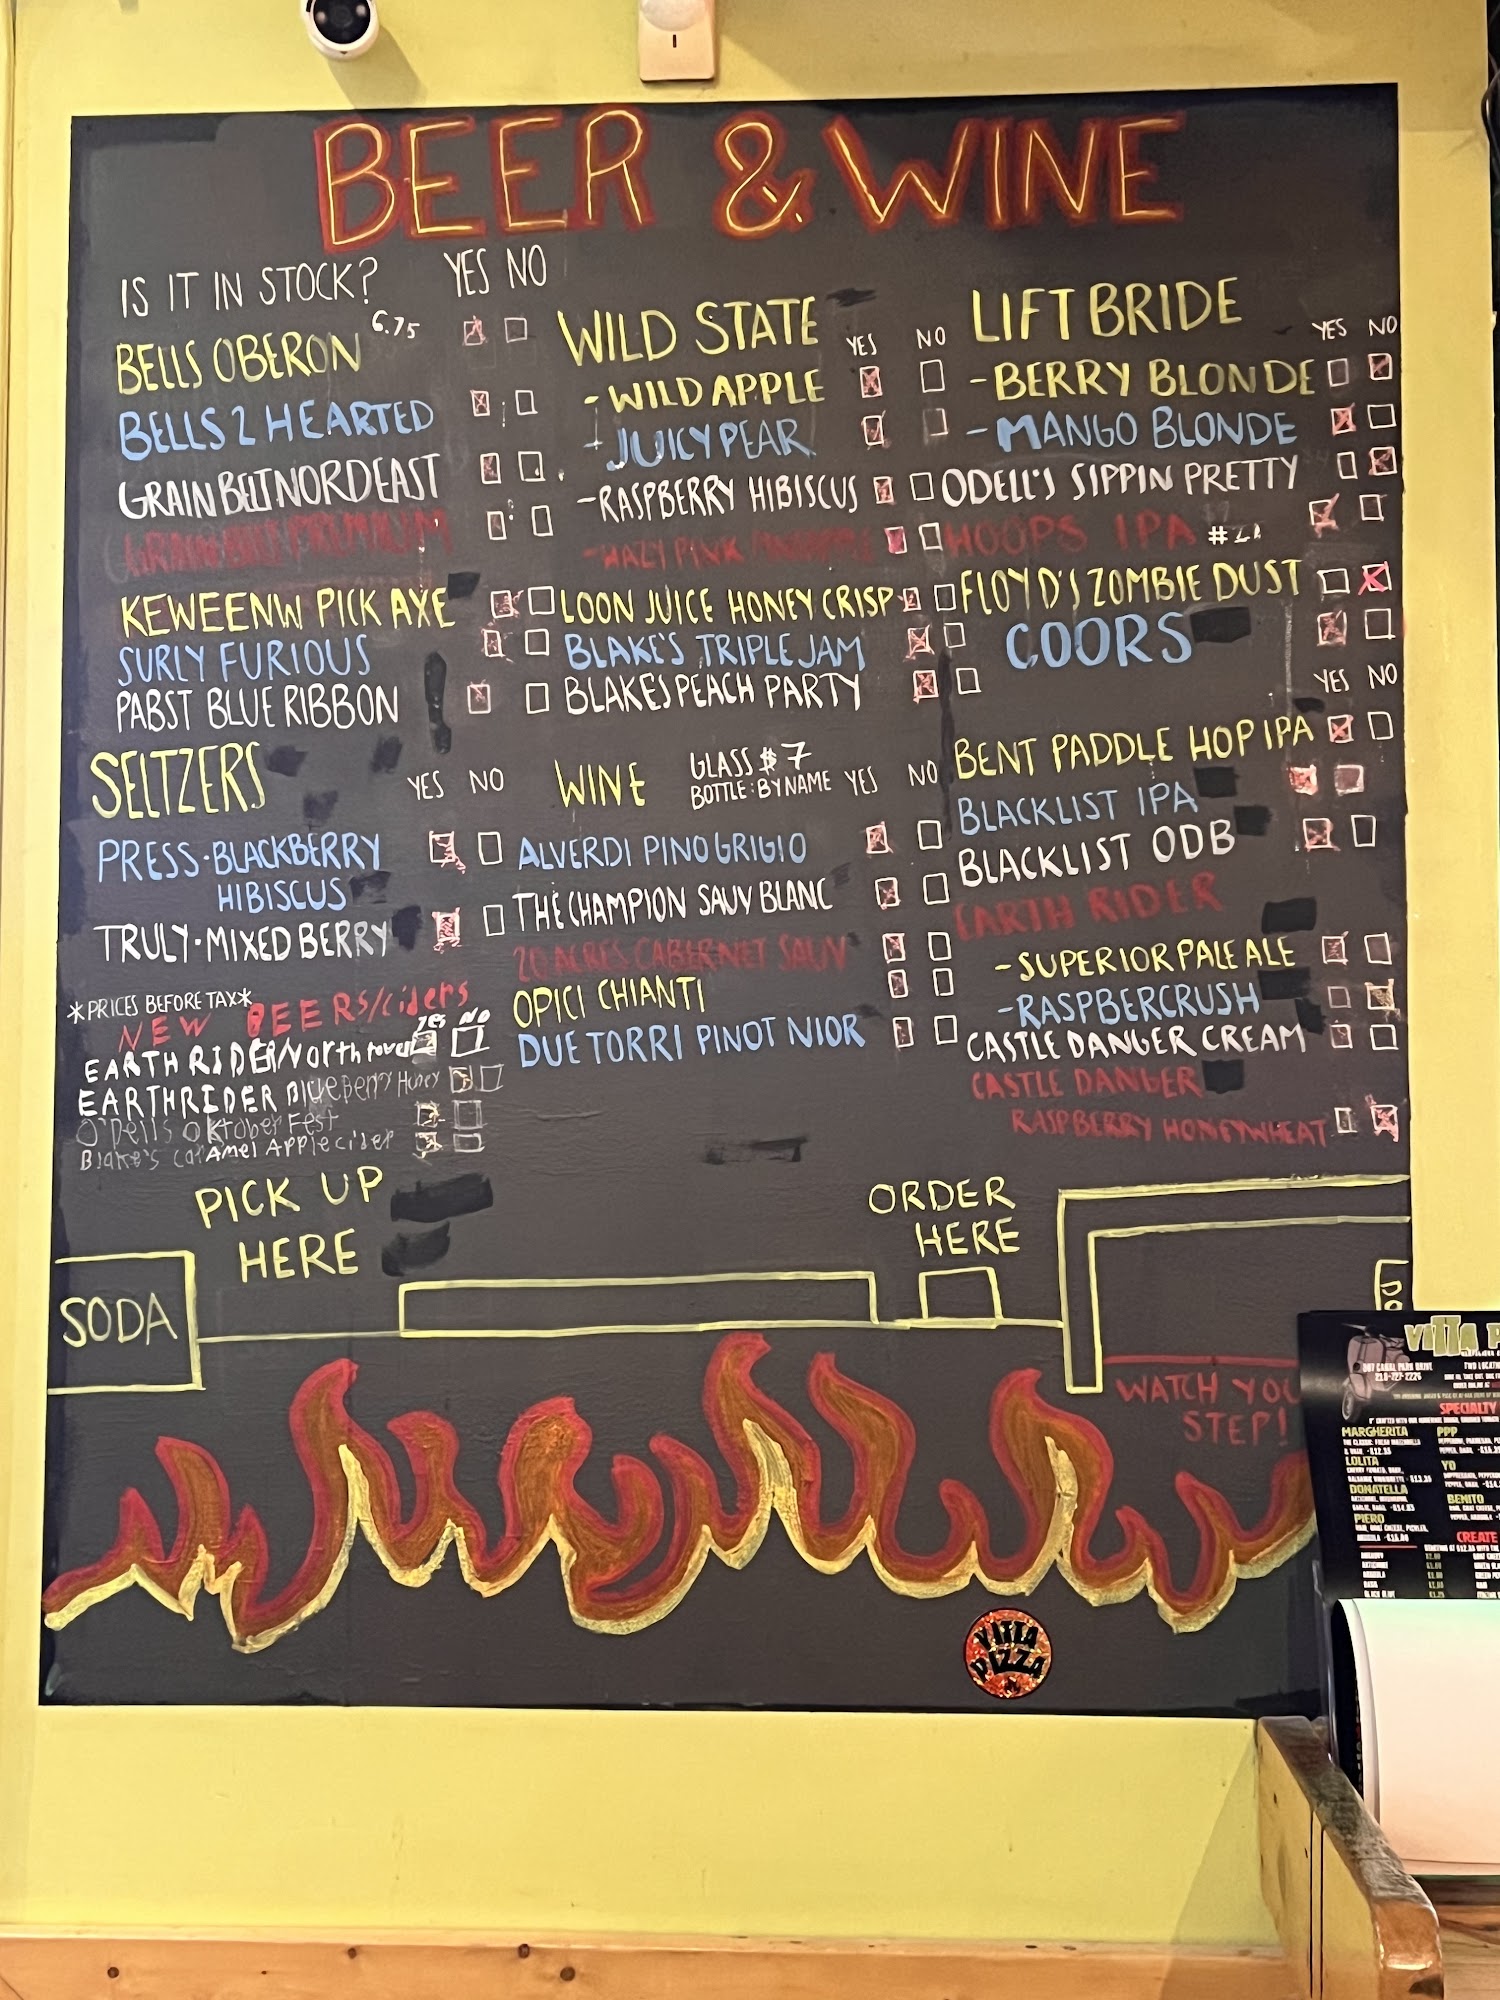 BEER & WINE
IS IT IN STOCK? YES NO
BELLS OBERON 6.75
BELLS 2 HEARTED
GRAIN BELT NORDEAST
GRAIN BELT PREMIUM
KEWEENW PICK AXE
SURLY FURIOUS
PABST BLUE RIBBON
SELTZERS YES NO
PRESS-BLACKBERRY
HIBISCUS
TRULY-MIXED BERRY
*PRICES BEFORE TAX*
NEW BEERS/ciders
yes no
EARTH RIDER/North tower
EARTHRIDER Blueberry Honey
O'Dells Oktober Fest
Blake's Caramel Apple cider
WILD STATE YES NO
-WILD APPLE
-JUICY PEAR
-RASPBERRY HIBISCUS
-HAZY PINK
LOON JUICE HONEY CRISP
BLAKE'S TRIPLE JAM
BLAKES PEACH PARTY
WINE GLASS $7
BOTTLE: BY NAME YES NO
ALVERDI PINO GRIGIO
THE CHAMPION SAUV BLANC
20 ACRES CABERNET SAUV
OPICI CHIANTI
DUE TORRI PINOT NIOR
LIFT BRIDE
YES NO
-BERRY BLONDE
-MANGO BLONDE
ODELL'S SIPPIN PRETTY
HOOPS IPA
FLOYD'S ZOMBIE DUST
COORS
YES NO
BENT PADDLE HOP IPA
BLACKLIST IPA
BLACKLIST ODB
EARTH RIDER
-SUPERIOR PALE ALE
-RASPBERCRUSH
CASTLE DANGER CREAM
CASTLE DANGER
RASPBERRY HONEYWHEAT
PICK UP
HERE
ORDER
HERE
SODA
WATCH YOU
STEP!
VITTA
PIZZA
VITTA P
307 CANAL PARK DRIVE
218-727-2226
SPECIALTY
MARGHERITA PPP
LOLITA YO
DONATELLA BENITO
PIERO
CREATE